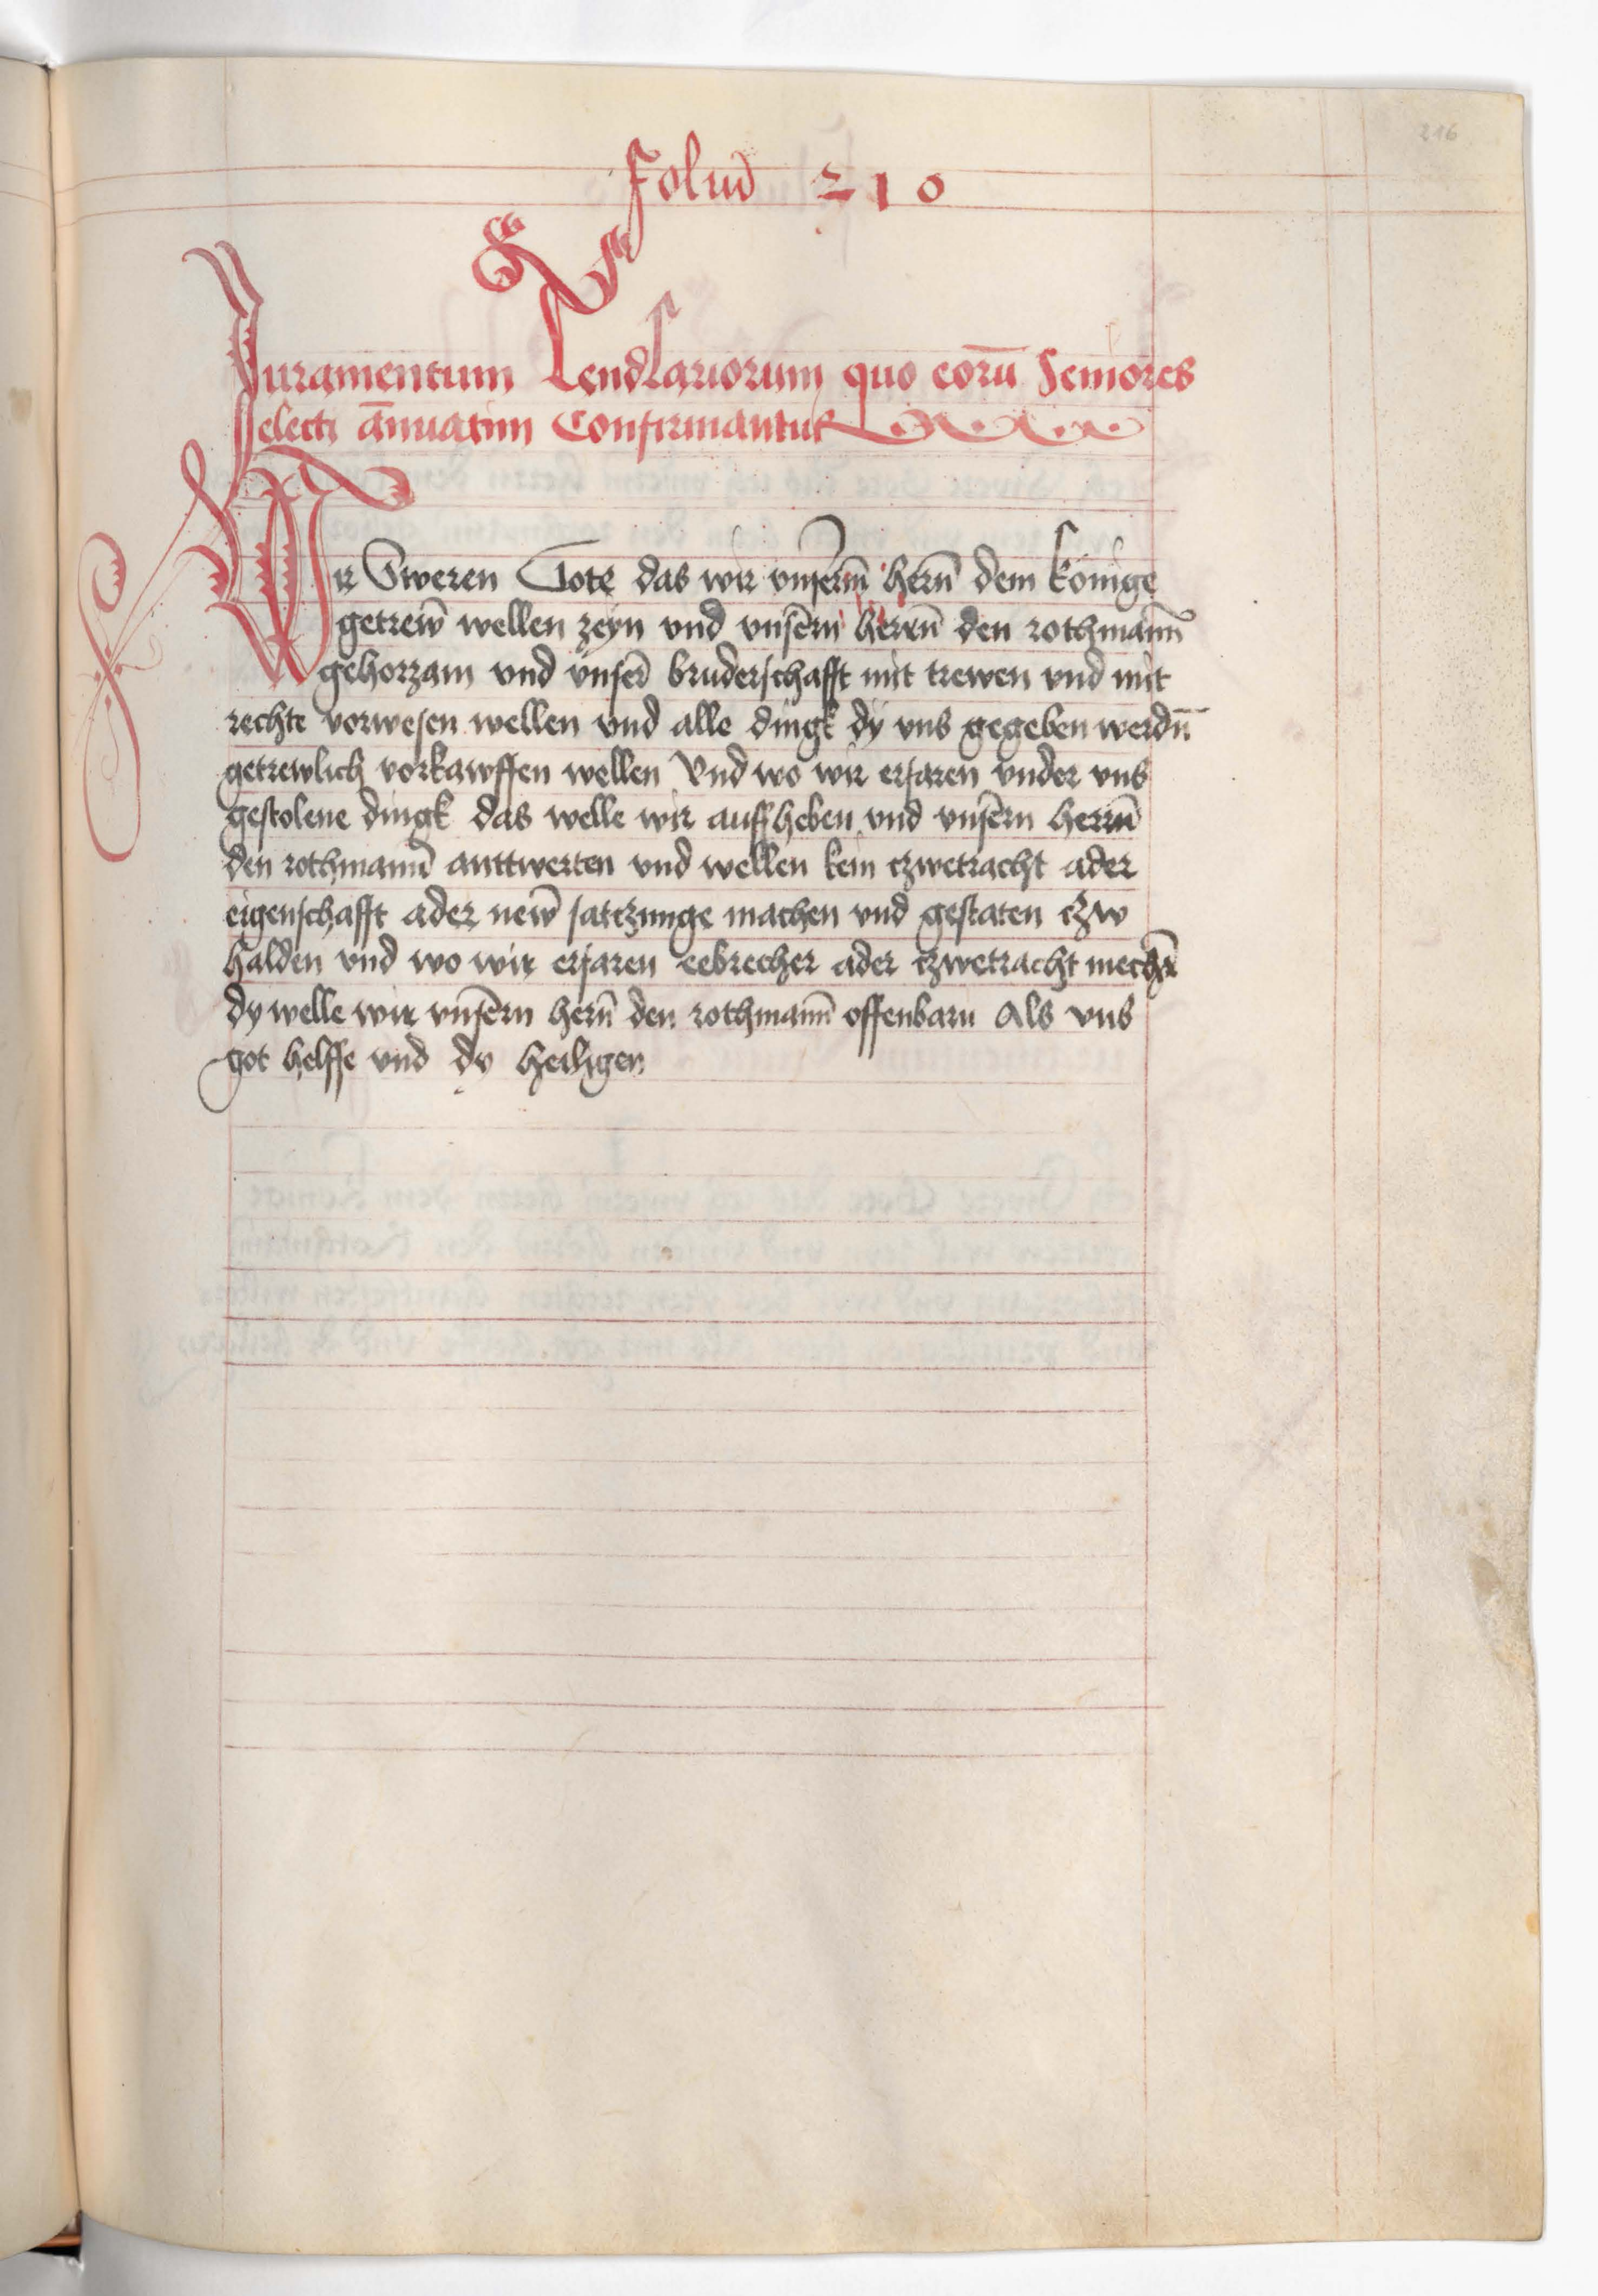 216
Foliū 210
Juramentum Lendlariorum quo eorū Seniores
electi ānuatim Confirmantur
Wir Sweren Gote das wir vnserm̄ hern̄ dem konige
getrew̄ wellen zeyn vnd vnsērn herrn̄ den rothmann̄
gehorzam vnd vnser̄ bruderschafft mit trewen vnd mit
rechte vorwesen wellen vnd alle dingk dy vns gegeben werdn̄
getrewlich vorkawffen wellen Vnd wo wir erfaren vnder vns
gestolene dingk das welle wir auffheben vnd vnsērn herrn̄
den rothmann̄ anttwerten vnd wellen kein czwetracht ader
eigenschafft ader new̄ satczunge machen vnd gestaten czw
halden vnd wo wir erfaren eebrecher ader czwetracht mechr̄
dy welle wir vnsērn hern̄ den rothmann̄ offenbarn Als vns
got helffe vnd dy heiligen